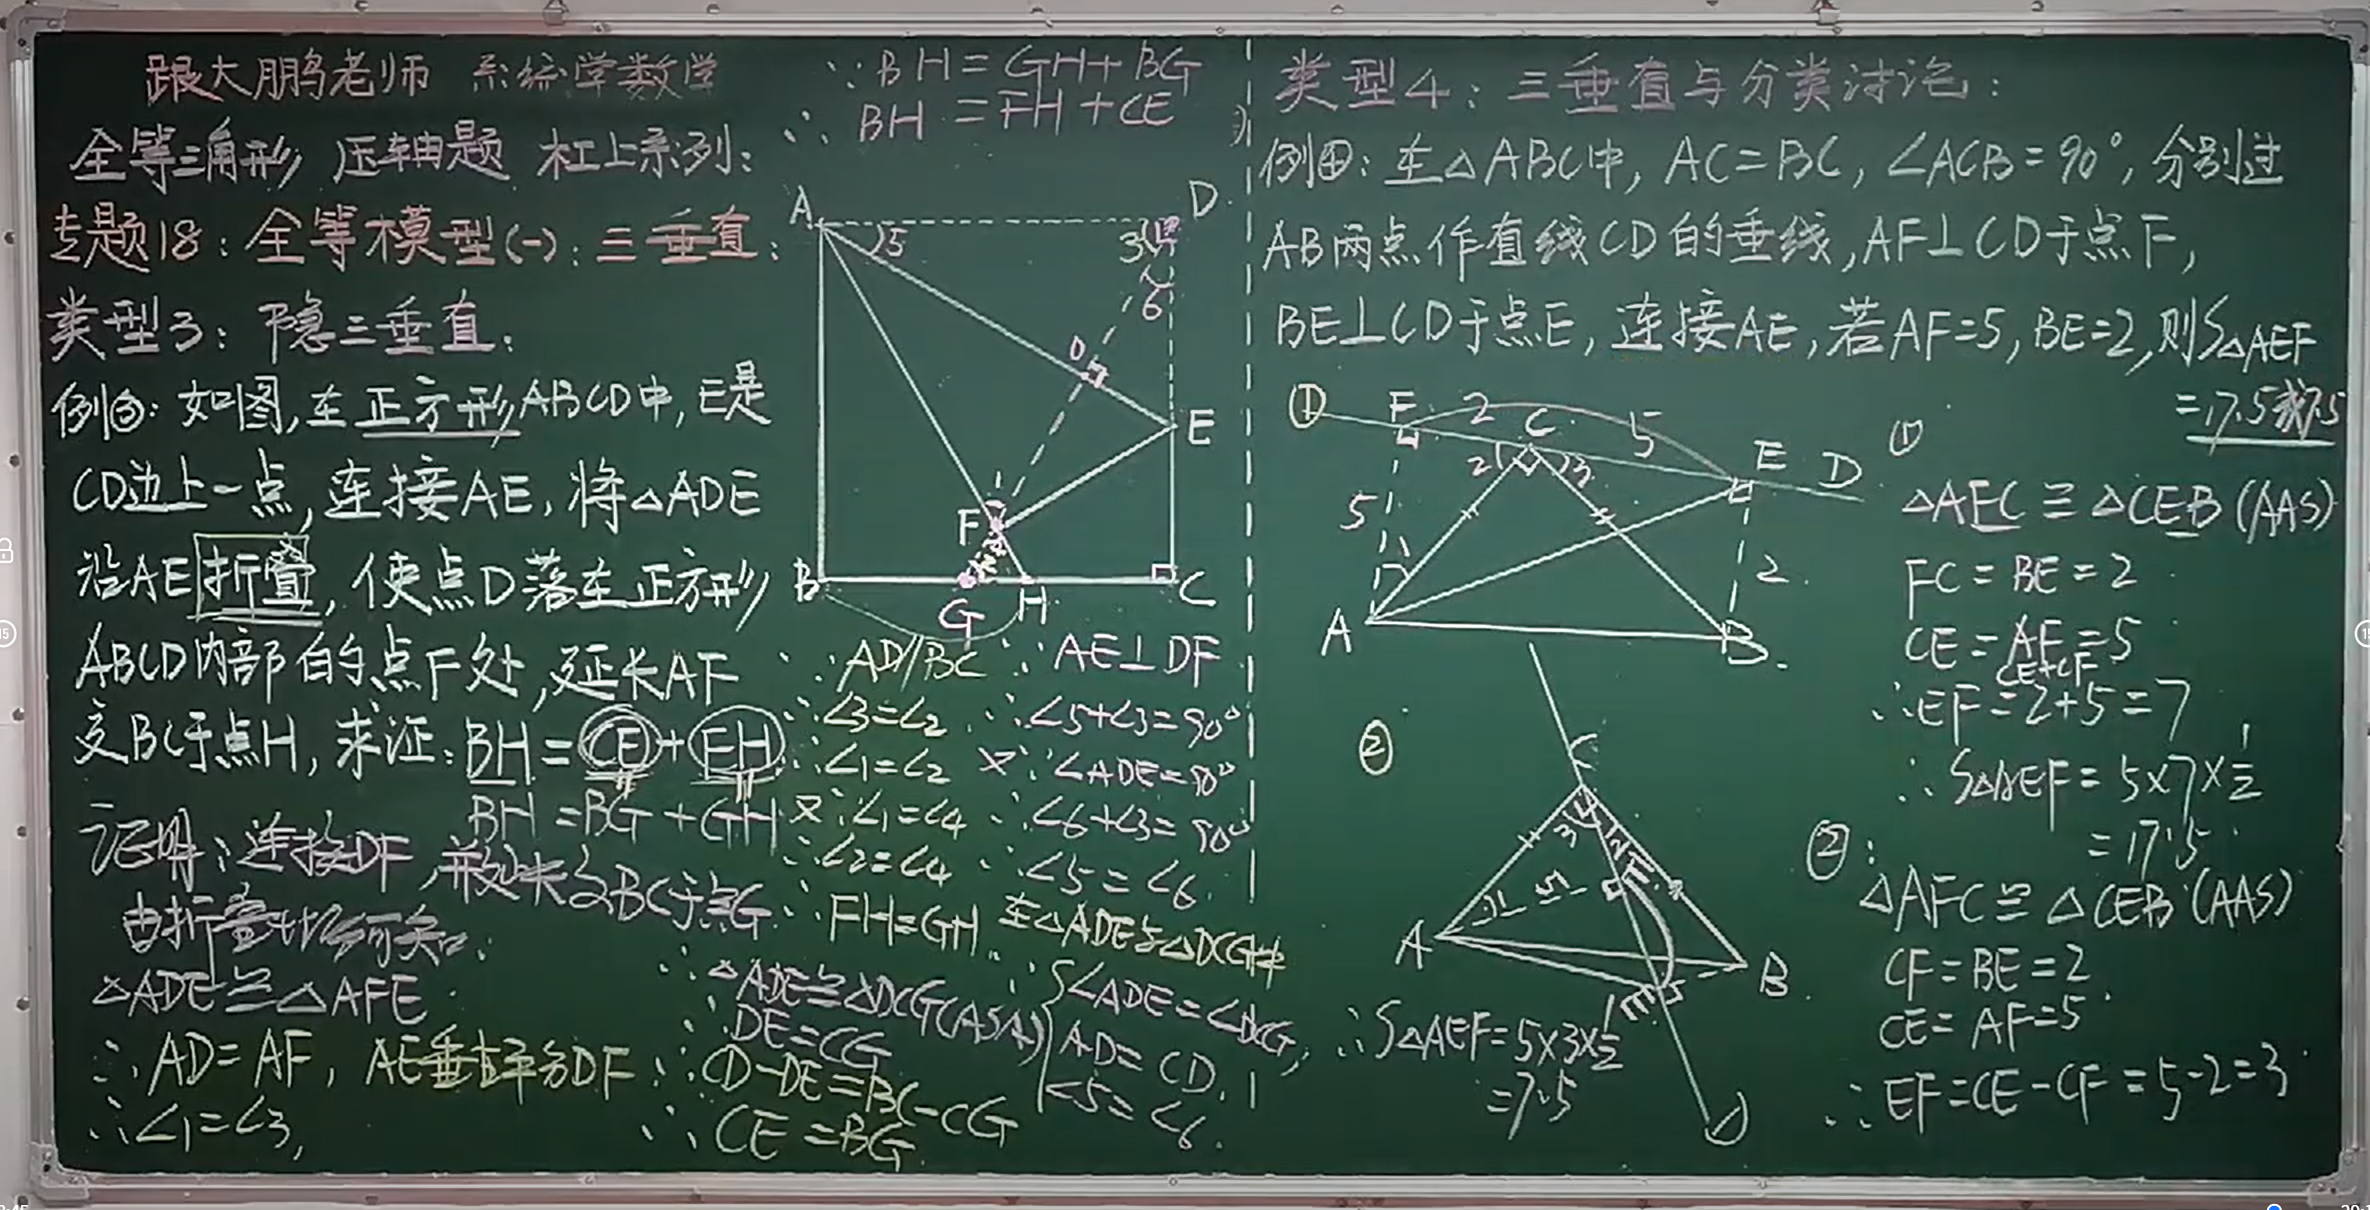 跟大鹏老师 系统学数学
全等三角形 压轴题 杠上系列:
专题18:全等模型(一):三垂直:
类型3:隐三垂直:
例③:如图,在正方形ABCD中,E是
CD边上一点,连接AE,将△ADE
沿AE折叠,使点D落在正方形
ABCD内部的点F处,延长AF
交BC于点H,求证:BH=CE+FH
BH=BG+GH
证明:连接DF,并延长交BC于点G
由折叠性质可知:
△ADE≌△AFE
∴AD=AF,AE垂直平分DF
∴∠1=∠3,
∵BH=GH+BG
∴BH=FH+CE
A
D
5
3
6
O
E
F
B
G
H
C
∵AD//BC
∴∠3=∠2
∴∠1=∠2
又∵∠1=∠4
∴∠2=∠4
∴FH=GH
∵AE⊥DF
∴∠5+∠3=90°
又∵∠ADE=90°
∴∠6+∠3=90°
∴∠5=∠6
在△ADE与△DCG中
∠ADE=∠DCG,
AD=CD
∠5=∠6
∴△ADE≌△DCG(ASA)
∴DE=CG
∴CD-DE=BC-CG
∴CE=BG
类型4:三垂直与分类讨论:
例④:在△ABC中,AC=BC,∠ACB=90°,分别过
AB两点作直线CD的垂线,AF⊥CD于点F,
BE⊥CD于点E,连接AE,若AF=5,BE=2,则S△AEF
=17.5或7.5
①
F
2
C
5
E
D
2
3
5
1
2
A
B
①
△AFC≌△CEB(AAS)
FC=BE=2
CE=AF=5
CE+CF
∴EF=2+5=7
∴S△AEF=5×7×1/2
=17.5
②
C
3
2
1
5
F
A
B
E
D
∴S△AEF=5×3×1/2
=7.5
②:
△AFC≌△CEB(AAS)
CF=BE=2
CE=AF=5
∴EF=CE-CF=5-2=3